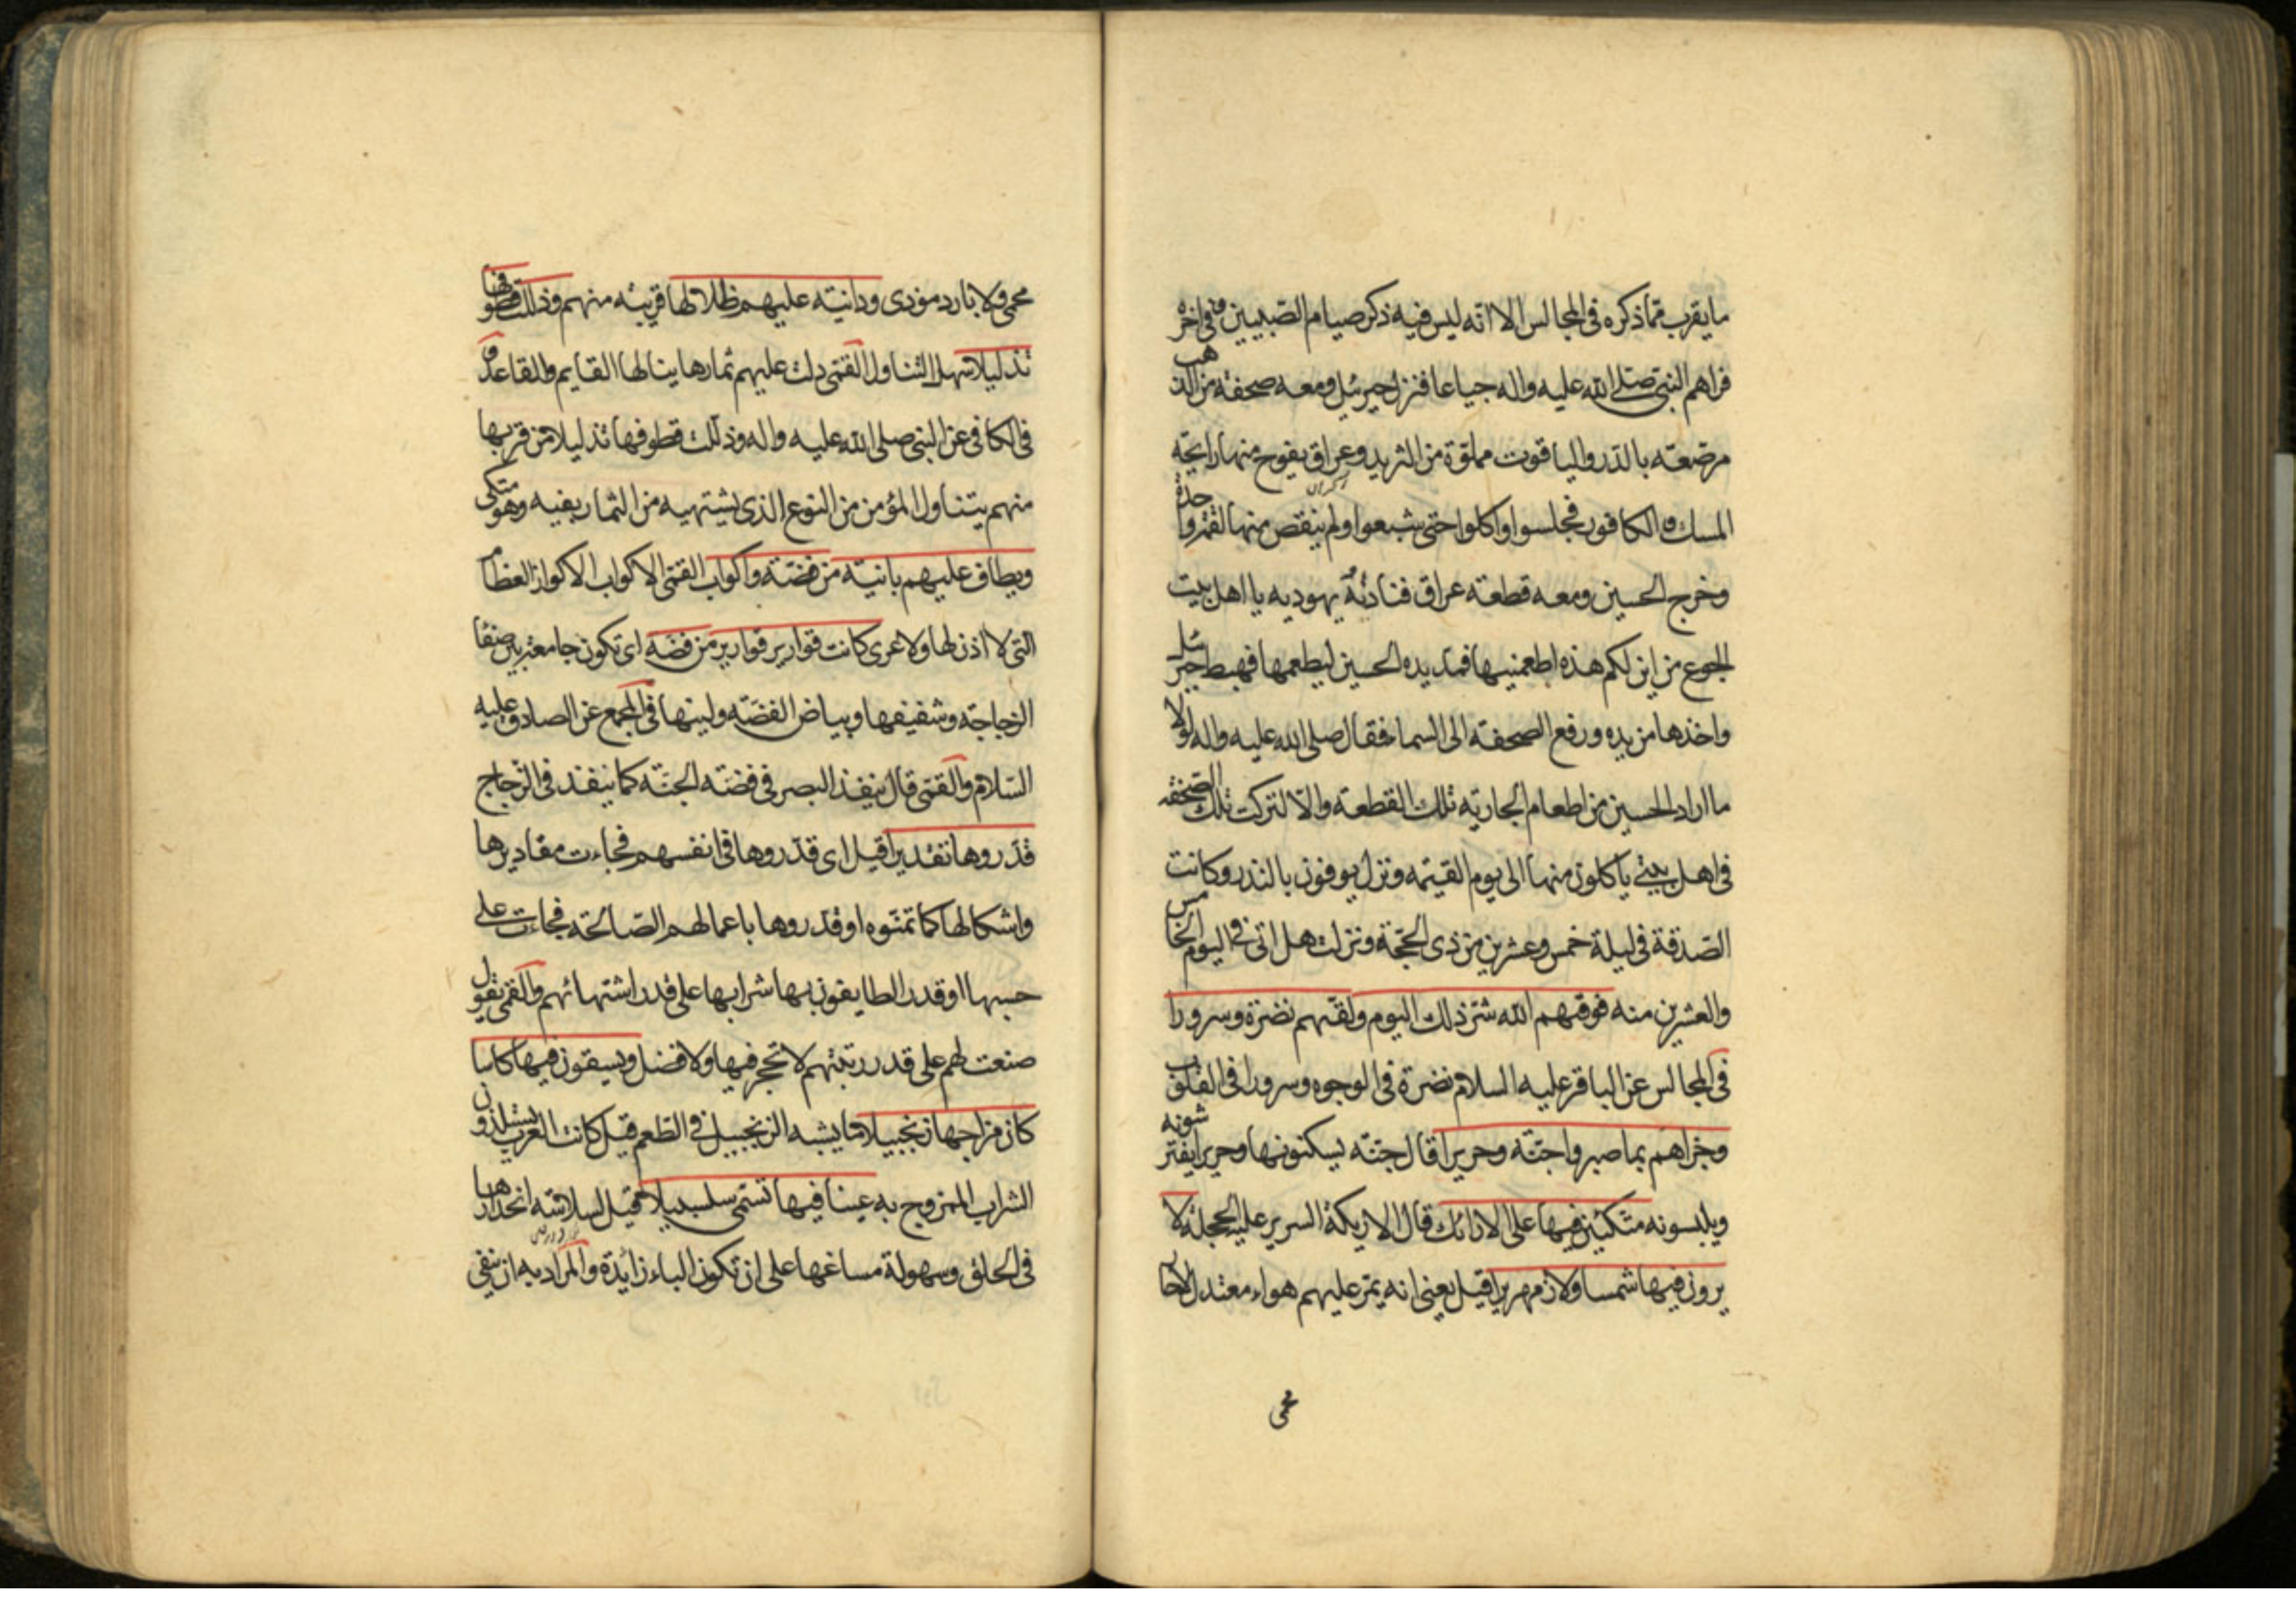 ما يقرب مما ذكره فى المجالس الا انه ليس فيه ذكر صيام الصبيين وفى اخره
فراهم النبى صلى الله عليه واله جياعا فنزل جبرئيل ومعه صحفة من الذهب
مرصعة بالدر والياقوت مملوة من الثريد وعراق يفوح منها رايحة
المسك والكافور فجلسوا واكلوا حتى شبعوا ولم ينقص منها لقمة واحدة
وخرج الحسين ومعه قطعة عراق فنادته يهودية يا اهل بيت
الجوع من اين لكم هذه اطعمنيها فمد يده الحسين ليطعمها فهبط جبرئيل
واخذها من يده ورفع الصحفة الى السماء فقال صلى الله عليه واله لولا
ما اراد الحسين من اطعام الجارية تلك القطعة والا لتركت تلك الصحفة
فى اهل بيتى ياكلون منها الى يوم القيمة ونزل يوفون بالنذر وكانت
الصدقة فى ليلة خمس وعشرين من ذى الحجة ونزلت هل اتى فى اليوم الخامس
والعشرين منه فوقهم الله شر ذلك اليوم ولقيهم نضرة وسرورا
فى المجالس عن الباقر عليه السلام نضرة فى الوجوه وسرورا فى القلوب
وجزاهم بما صبروا جنة وحريرا قال جنة يسكنونها وحريرا يفترشونه
ويلبسونه متكئين فيها على الارائك قال الاريكة السرير عليه الحجلة لا
يرون فيها شمسا ولا زمهريرا قيل يعنى انه يمر عليهم هواء معتدل لا حار
محمى
محمى ولا بارد موذى ودانية عليهم ظلالها قريبة منهم وذللت قطوفها
تذليلا سهل التناول القمى دلت عليهم ثمارها ينالها القايم والقاعد و
فى الكافى عن النبى صلى الله عليه واله وذللت قطوفها تذليلا من قربها
منهم يتناول المؤمن من النوع الذى يشتهيه من الثمار بفيه وهو متكى
ويطاف عليهم بانية من فضة واكواب القمى الاكواب الاكواز العظام
التى لا اذن لها ولا عرى كانت قوارير قوارير من فضة اى تكون جامعة بين صفا
الزجاجة وشفيفها وبياض الفضة ولينها فى المجمع عن الصادق عليه
السلام والقمى قال ينفذ البصر فى فضة الجنة كما ينفذ فى الزجاج
قدروها تقديرا قيل اى قدروها فى انفسهم فجاءت مقاديرها
واشكالها كما تمنوه او قدروها باعمالهم الصالحة فجاءت على
حسبها او قدر الطايفون بها شرابها على قدر اشتهائهم والقمى يقول
صنعت لهم على قدر رتبتهم لا تحجر فيها ولا فضل ويسقون فيها كاسا
كان مزاجها زنجبيلا ما يشبه الزنجبيل فى الطعم قيل كانت العرب يستلذون
الشراب الممزوج به عينا فيها تسمى سلسبيلا قيل لسلاسة انحدارها
فى الحلق وسهولة مساغها على ان تكون الباء زائدة والمراد به ان ينفى